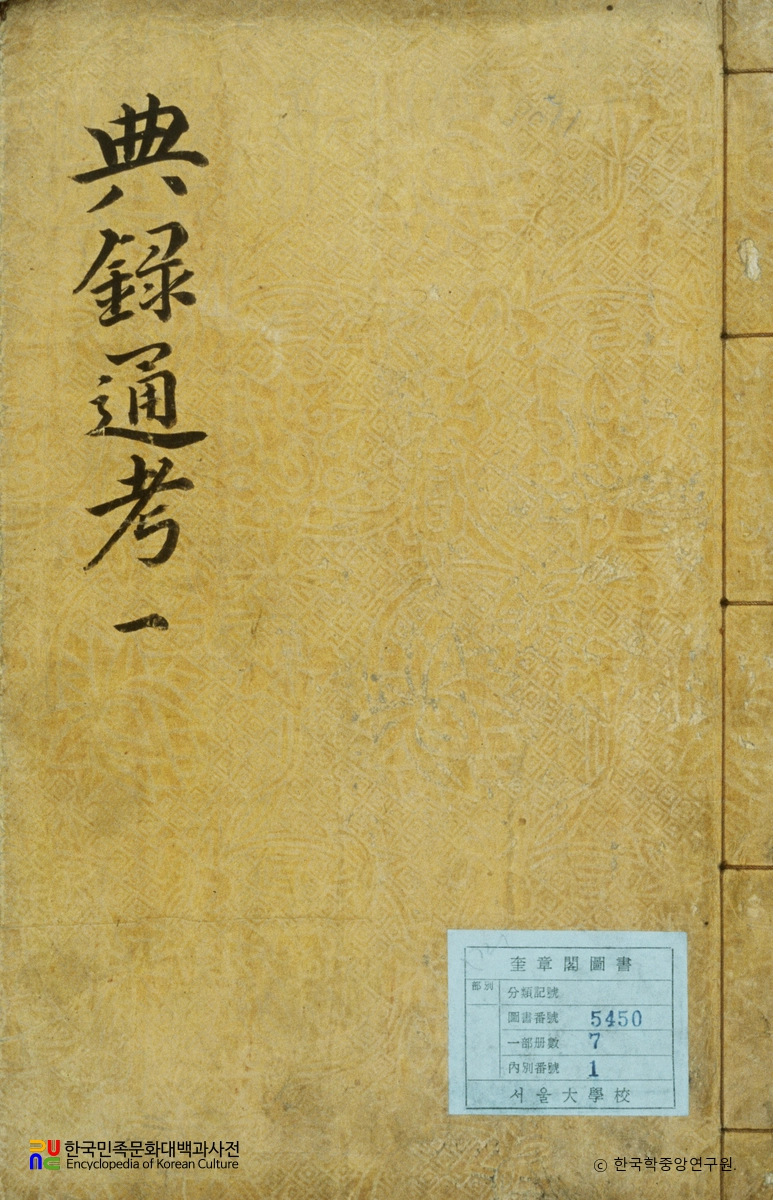 典錄通考 一
奎章閣圖書
部別
分類記號
圖書番號 5450
一部册數 7
內別番號 1
서울大學校
한국민족문화대백과사전
Encyclopedia of Korean Culture
© 한국학중앙연구원.